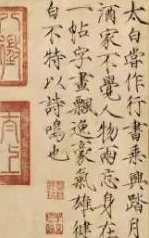 太白嘗作行書乘興踏月
酒家不覺人物兩忘身在
一帖字畫飄逸豪氣雄健
白不特以詩鳴也